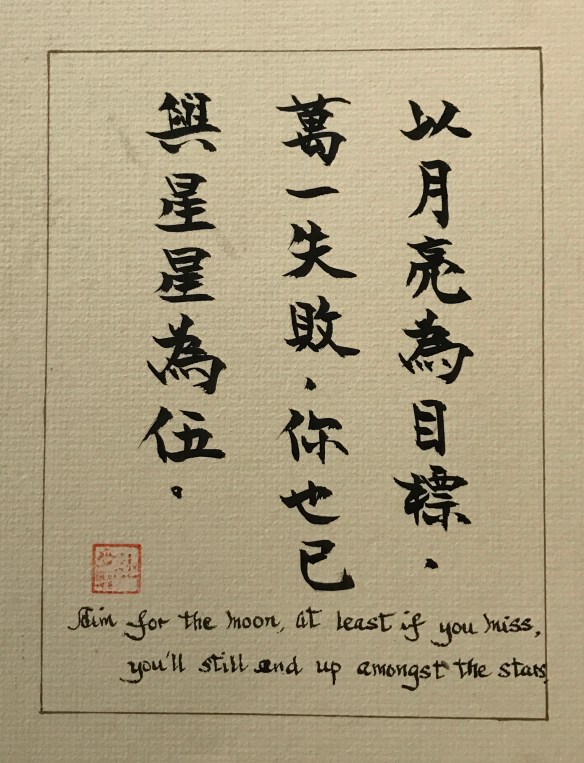 以月亮為目標.
萬一失敗.你也已
與星星為伍.
Aim for the moon, at least if you miss,
you'll still end up amongst the stars.